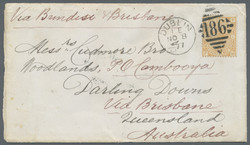 Via Brindisi & Brisbane
DUBLIN
NO 8
77
186
Messrs Cudmore Bro
Woodlands, PO Cambooya
Darling Downs
Via Brisbane
Queensland
Australia